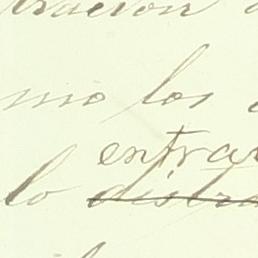 tracion
mo los
entrar
lo distra